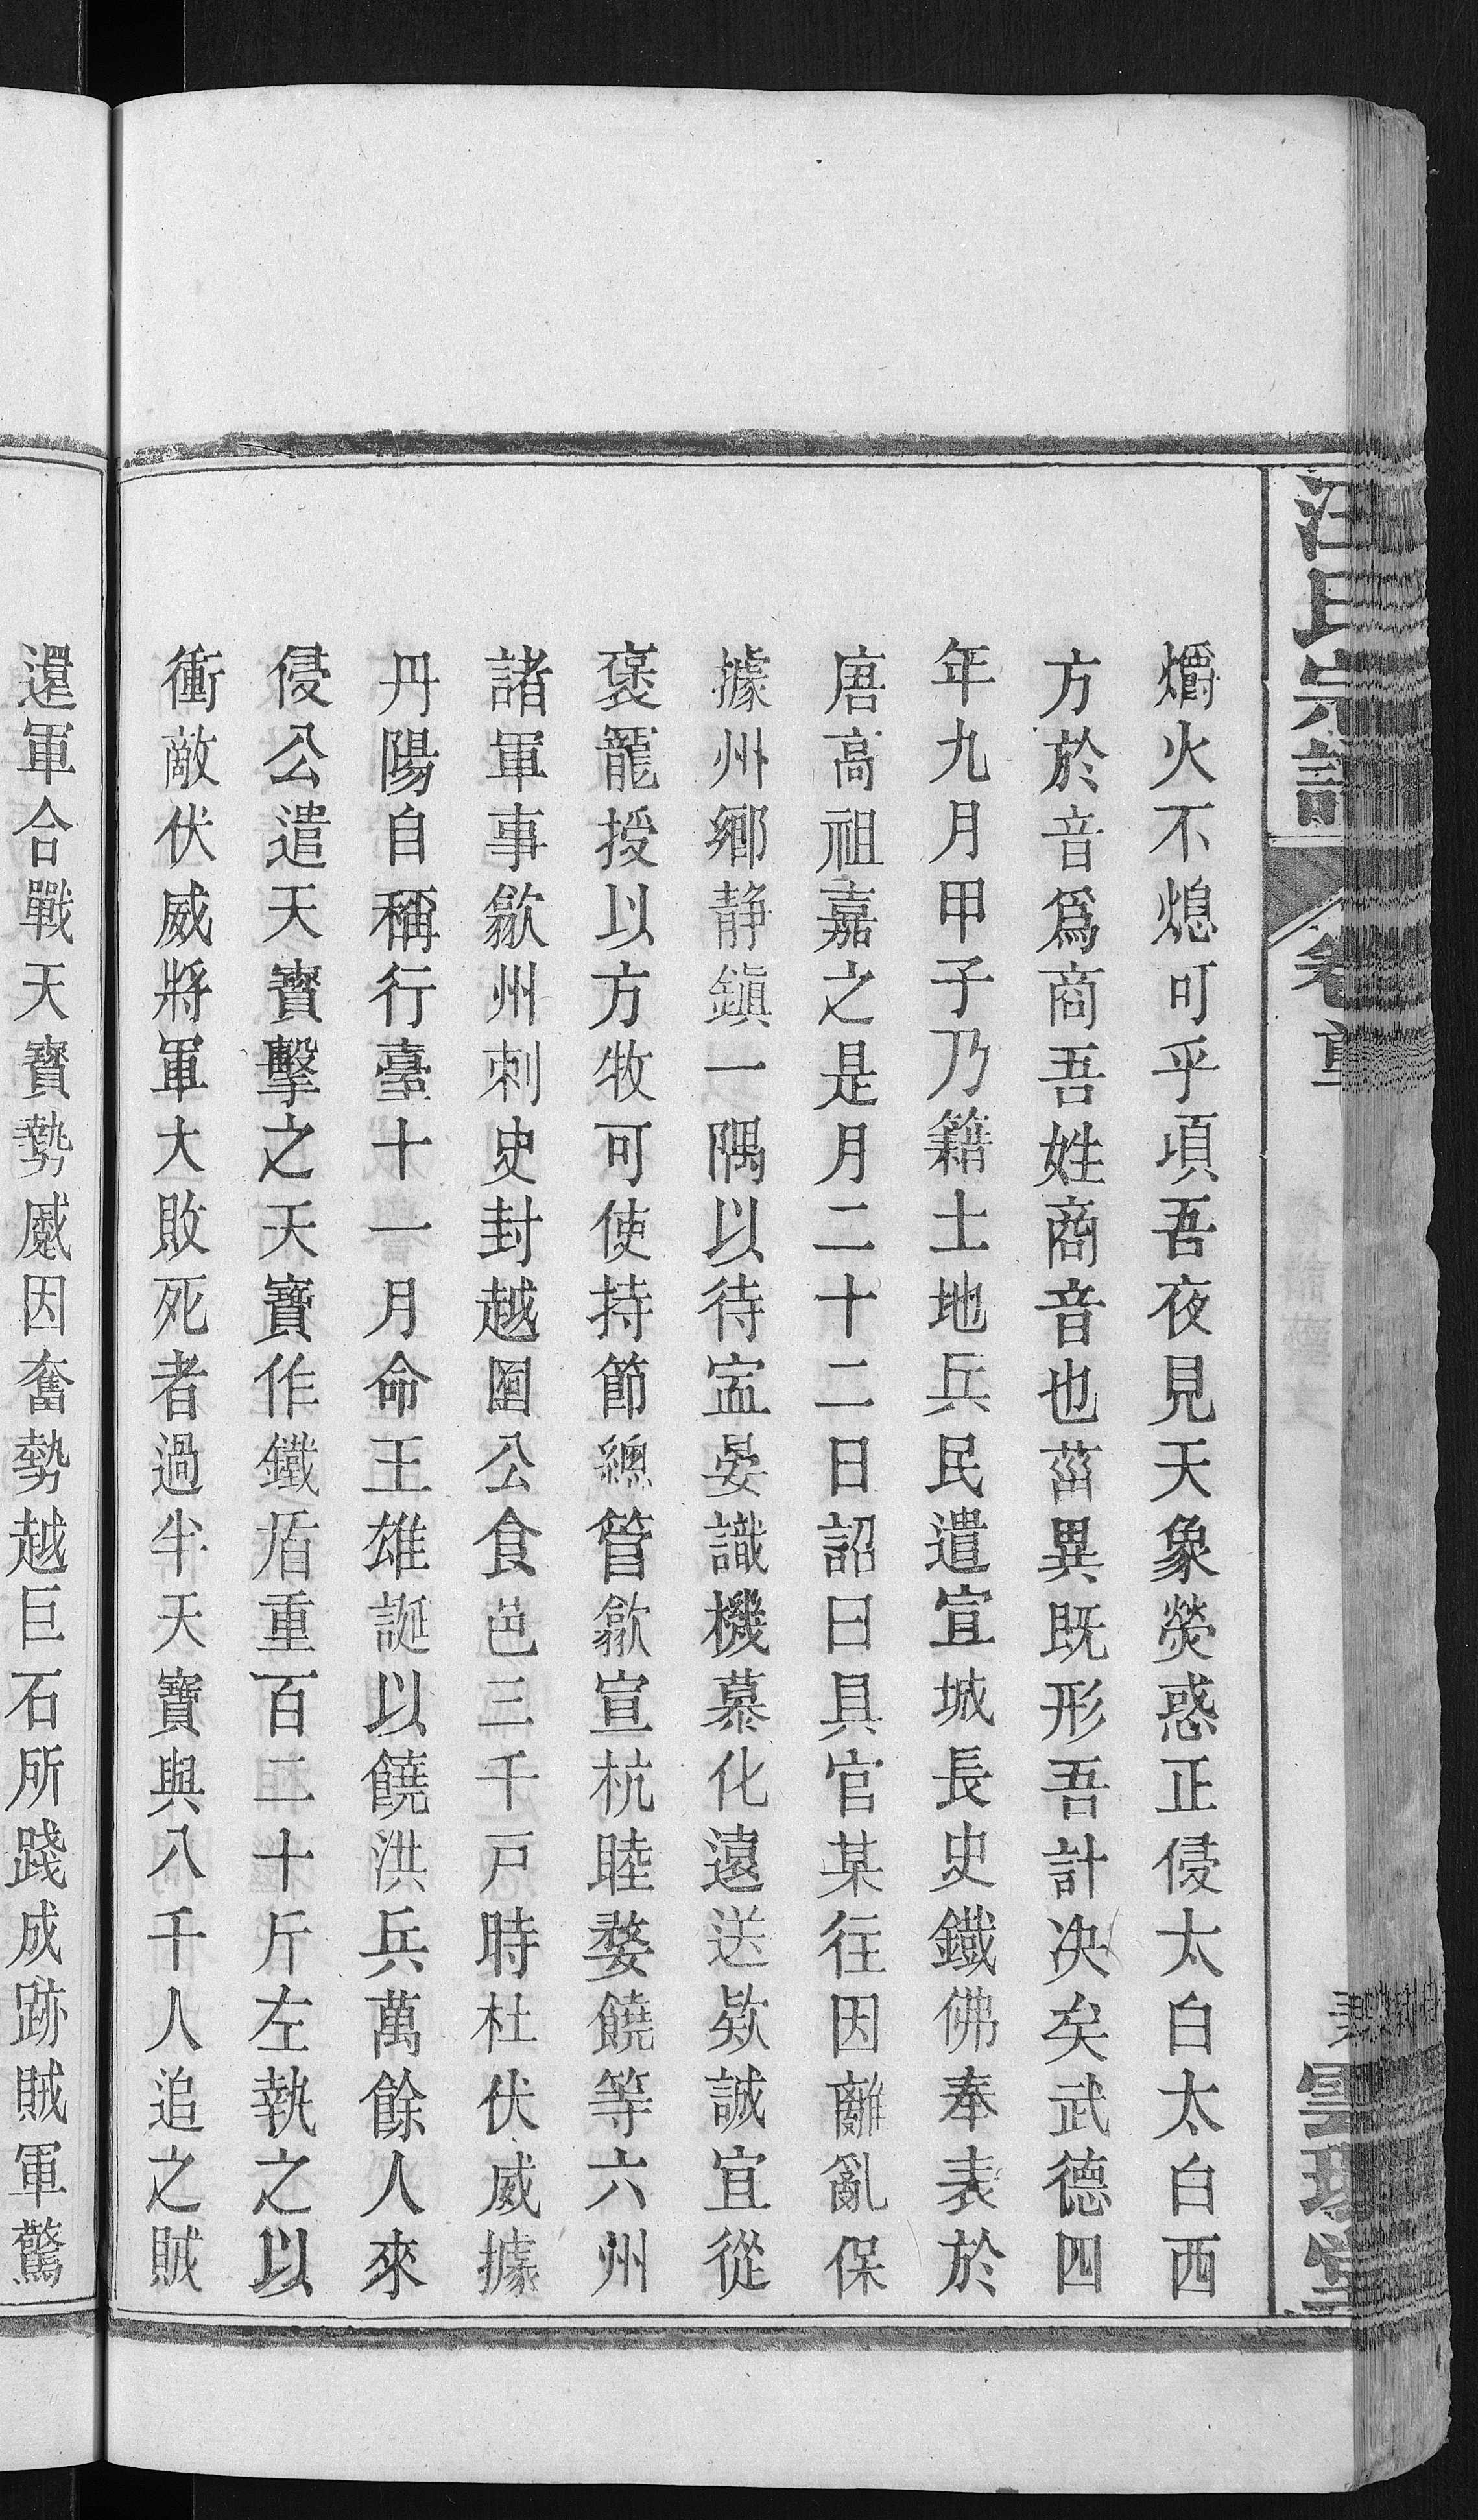 汪氏宗譜
卷首
爝火不熄可乎頃吾夜見天象熒惑正侵太白太白西
方於音爲商吾姓商音也菑異既形吾計决矣武德四
年九月甲子乃籍土地兵民遣宣城長史鐵佛奉表於
唐高祖嘉之是月二十二日詔曰具官某往因離亂保
據州鄉静鎮一隅以待寍晏識機慕化遠送欵誠宜從
褒寵授以方牧可使持節總管歙宣杭睦婺饒等六州
諸軍事歙州刺史封越國公食邑三千戸時杜伏威據
丹陽自稱行臺十一月命王雄誕以饒洪兵萬餘人來
侵公遣天寶擊之天寶作鐵盾重百二十斤左執之以
衝敵伏威將軍大敗死者過半天寶與八千人追之賊
還軍合戰天寶勢蹙因奮勢越巨石所踐成跡賊軍驚